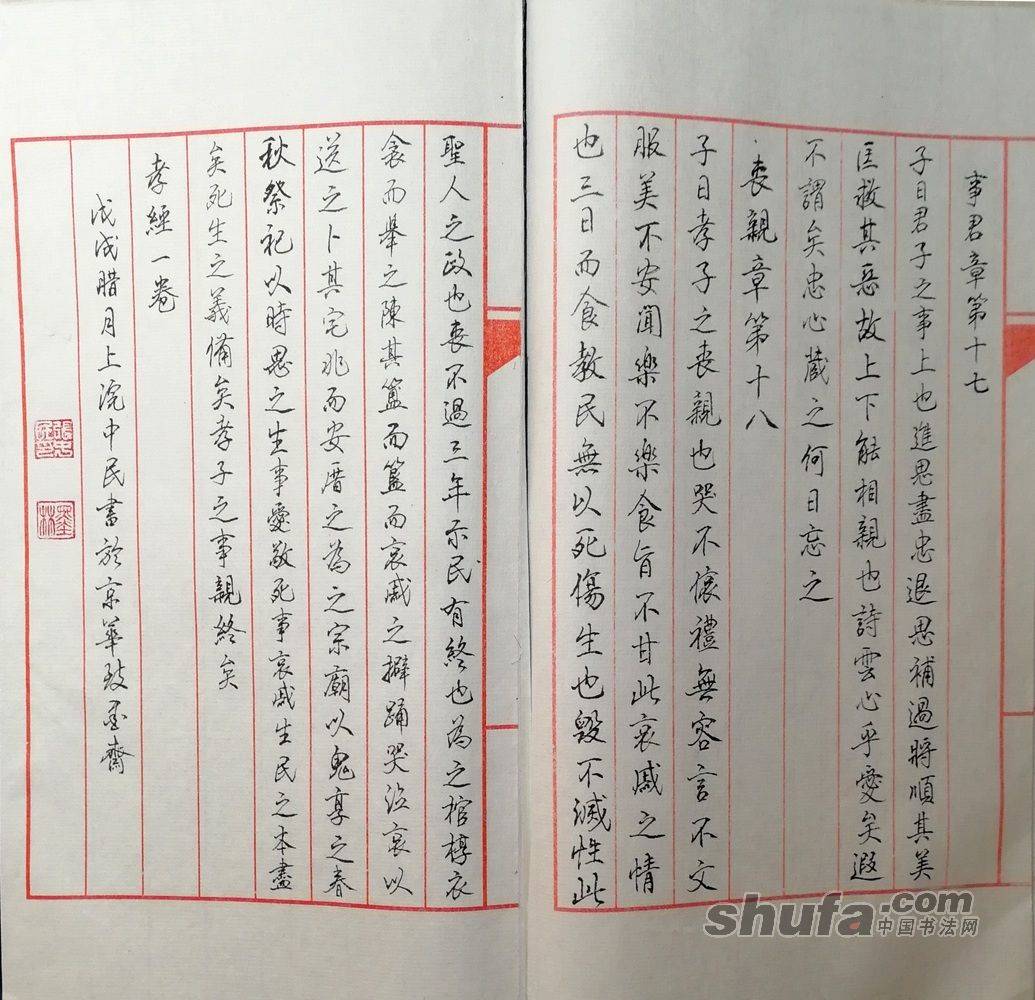 事君章第十七
子曰君子之事上也進思盡忠退思補過將順其美
匡救其惡故上下能相親也詩雲心乎愛矣遐
不謂矣忠心藏之何日忘之
喪親章第十八
子曰孝子之喪親也哭不偯禮無容言不文
服美不安聞樂不樂食旨不甘此哀戚之情
也三日而食教民無以死傷生也毀不滅性此
聖人之政也喪不過三年示民有終也為之棺椁衣
衾而舉之陳其簠而簋而哀戚之擗踊哭泣哀以
送之卜其宅兆而安厝之為之宗廟以鬼享之春
秋祭祀以時思之生事愛敬死事哀戚生民之本盡
矣死生之義備矣孝子之事親終矣
孝經一卷
戊戌腊月上浣中民書於京華齋
墨林
shufa.com
中国书法网